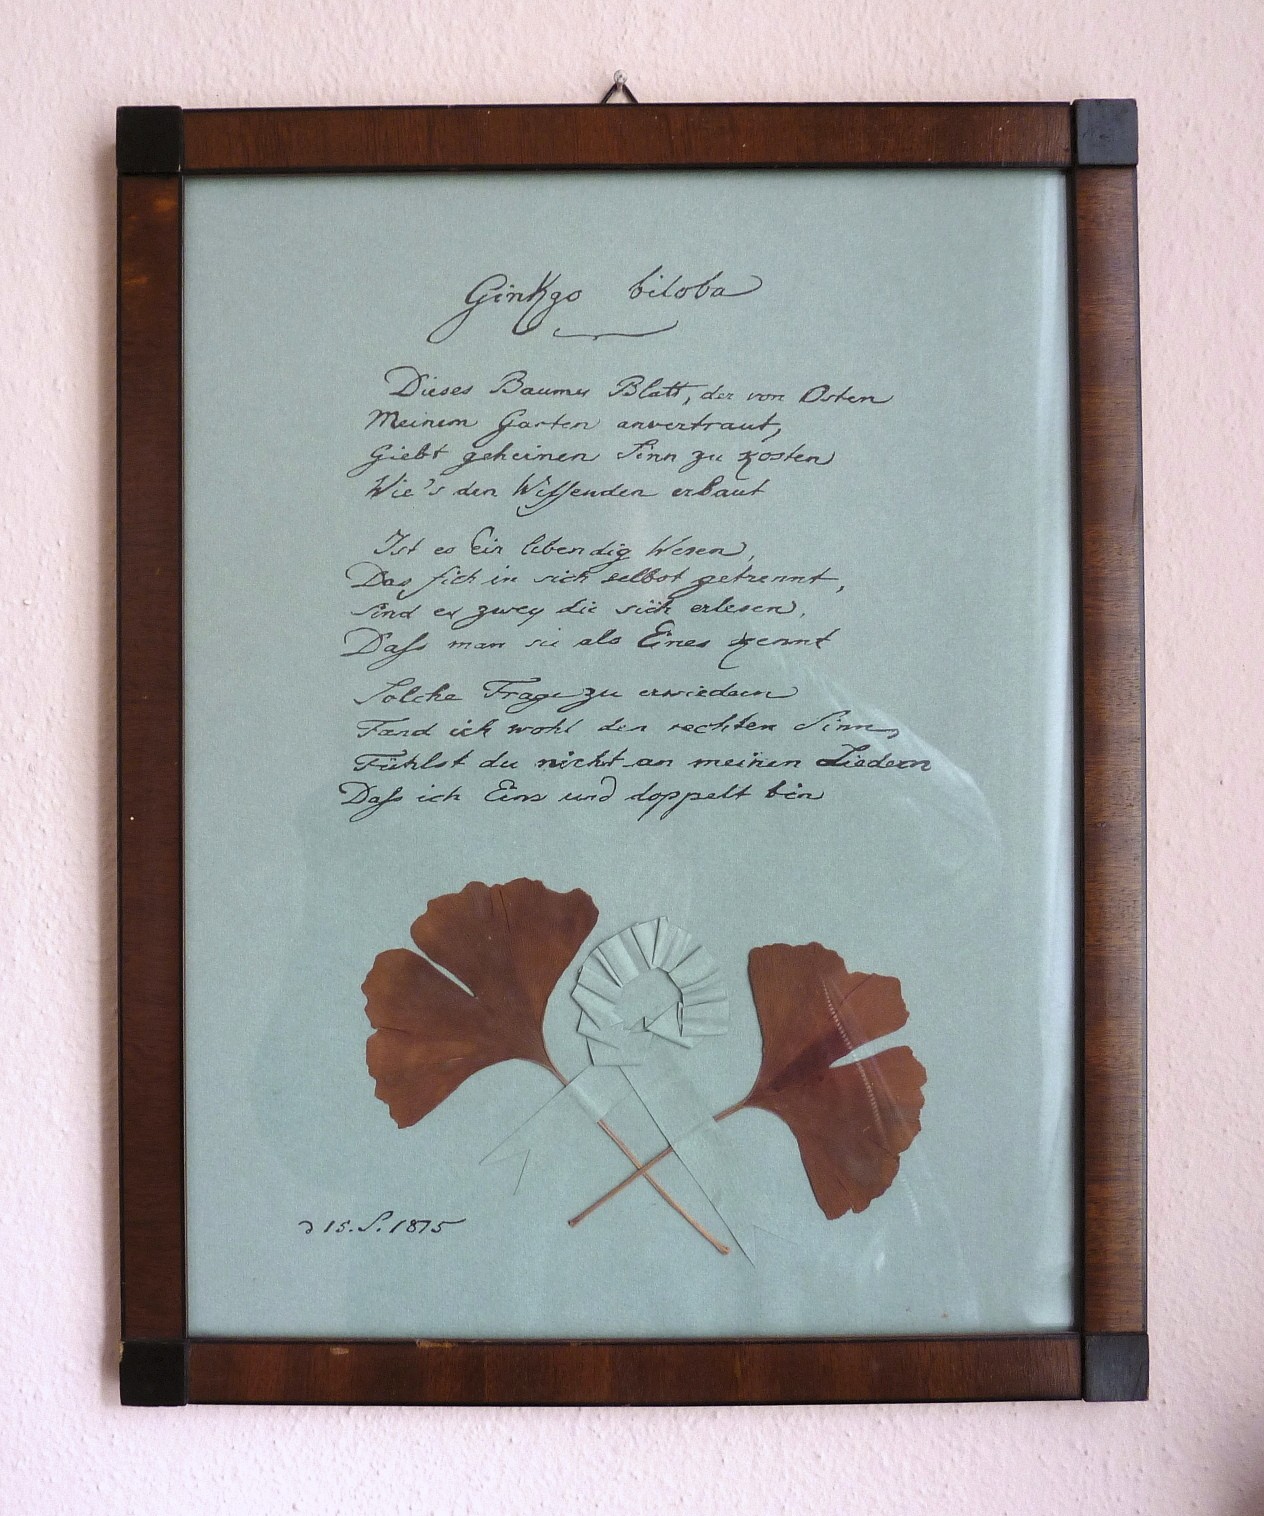 Ginkgo biloba
Dieses Baumes Blatt, der von Osten
Meinem Garten anvertraut,
Giebt geheinen Sinn zu kosten
Wie's den Wissenden erbaut
Ist es Ein lebendig Wesen,
Das sich in sich selbst getrennt,
Sind es zwey die sich erlesen,
Dass man sie als Eines kennt
Solche Frage zu erwiedern
Fand ich wohl den rechten Sinn,
Fühlst du nicht an meinen Liedern
Dass ich Eins und doppelt bin
d 15. S. 1815